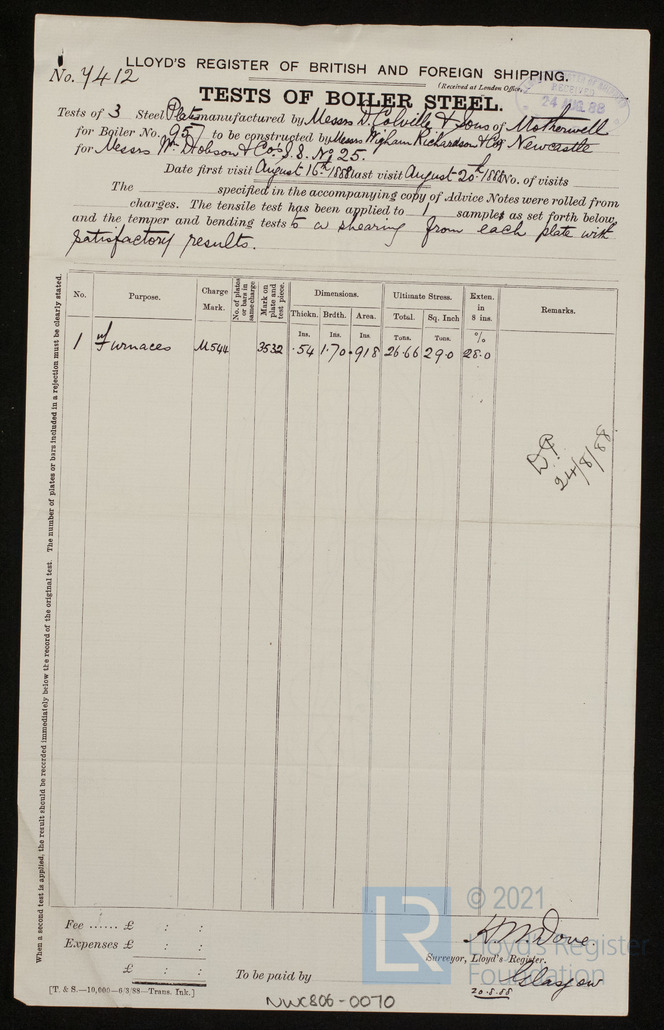 LLOYD'S REGISTER OF BRITISH AND FOREIGN SHIPPING.
No. 7412
(Received at London Office
RECEIVED
24 AUG. 88
TESTS OF BOILER STEEL.
Tests of 3 Steel Plates manufactured by Messrs D. Colville & Sons of Motherwell
for Boiler No. 957 to be constructed by Messrs Wigham Richardson & Co Newcastle
for Messrs Wm Dobson & Co's S.S. No 25.
Date first visit August 16th 1888 last visit August 20th 1888 No. of visits
The specified in the accompanying copy of Advice Notes were rolled from
charges. The tensile test has been applied to 1 samples as set forth below,
and the temper and bending tests to a shearing from each plate with
satisfactory results.
No. Purpose. Charge Mark. No. of plates or bars in same charge Mark on plate and test piece. Dimensions. Ultimate Stress. Exten. in 8 ins. Remarks.
Thickn. Brdth. Area. Total. Sq. Inch
Ins. Ins. Ins. Tons. Tons. %
1 Furnaces M544 3532 .54 1.70 .918 26.66 29.0 28.0
24/8/88
When a second test is applied, the result should be recorded immediately below the record of the original test. The number of plates or bars included in a rejection must be clearly stated.
Fee ...... £ : :
Expenses £ : :
£ : :
To be paid by
H. M. Dove.
Surveyor, Lloyd's Register.
Glasgow
20.8.88
[T. & S.—10,000—6/3/88—Trans. Ink.]
NWC806-0070
LR
© 2021
Lloyd's Register
Foundation